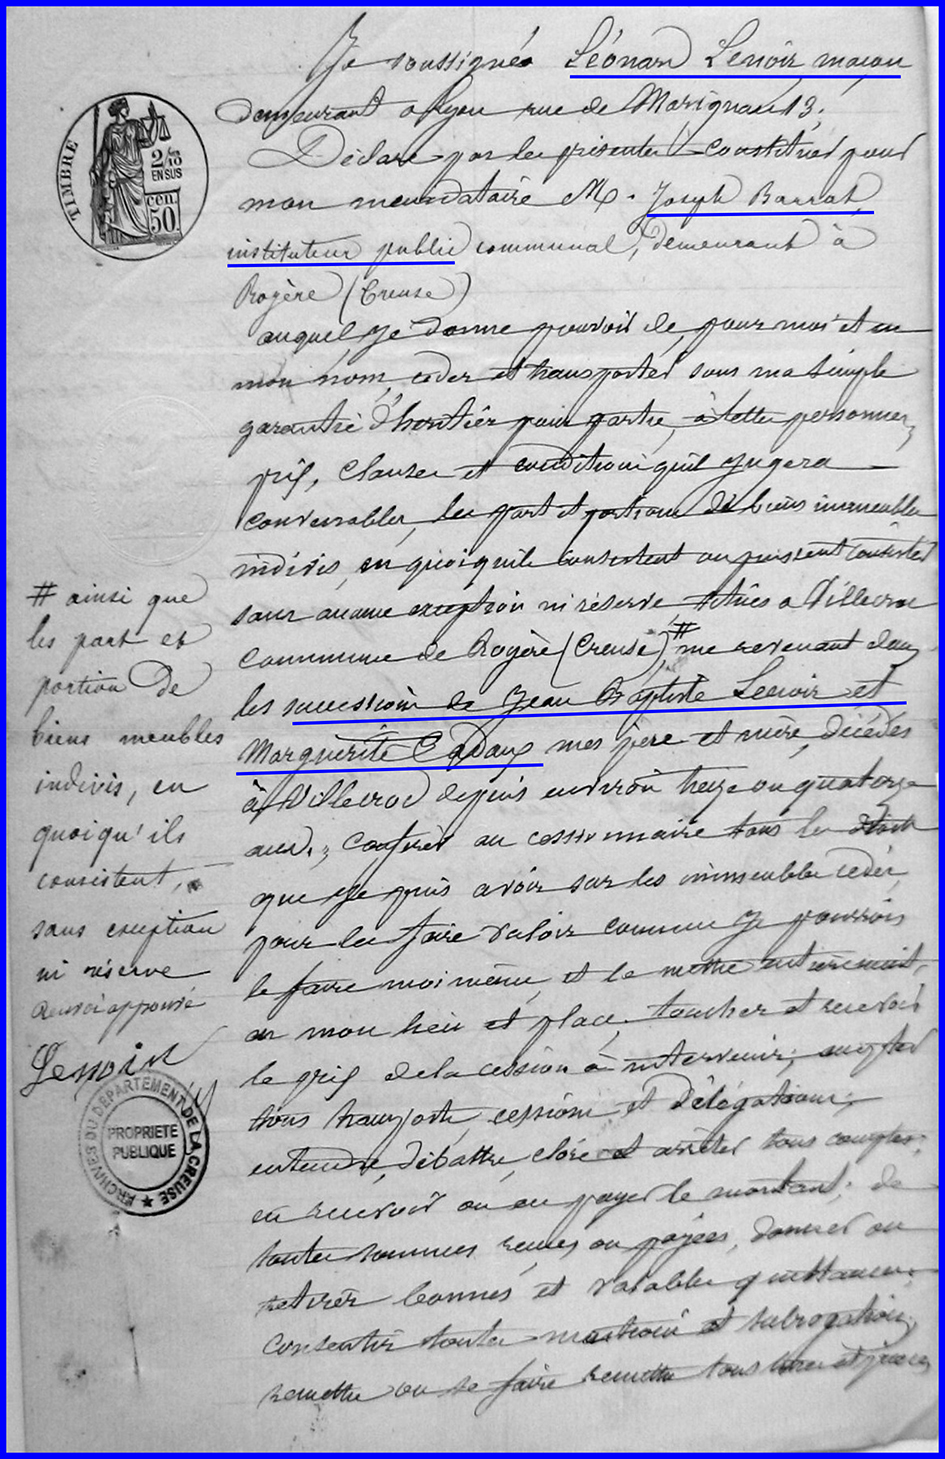 Je soussigné Léonard Lenoir, maçon
demeurant a Lyon rue de Marignan 13.
Déclare par les présentes constituer pour
mon mandataire M. Joseph Barrat,
instituteur public communal, demeurant à
Royère (Creuse)
auquel je donne pouvoir de, pour moi et en
mon nom, céder et transporter sous ma simple
garantie d'héritier pour partie, à telles personnes,
prix, clauses et conditions qu'il jugera
convenables, les part et portion de biens immeubles
indivis, en quoi qu'ils consistent ou puissent consister
sans aucune exception ni réserve situés a Villecrou
commune de Royère (Creuse), # me revenant dans
les succession de Jean Baptiste Lenoir et
Marguerite Cadoux mes père et mère, décédés
à Villecrou depuis environ treize ou quatorze
ans, céder au cessionnaire tous les droits
que je puis avoir sur les immeubles cédés,
pour les faire valoir comme je pourrois
le faire moi même, et le mettre entièrement,
en mon lieu et place, toucher et recevoir
le prix de la cession à intervenir; accepter
tous transports, cessions et délégations;
entendre, débattre, clore et arrêter tous comptes;
en recevoir ou en payer le montant; de
toutes sommes reçues ou payées, donner ou
retirer bonnes et valables quittances;
consentir toutes mentions et subrogations;
remettre ou se faire remettre tous titres et pièces
# ainsi que
les part et
portion de
biens meubles
indivis, en
quoi qu'ils
consistent,
sans exception
ni réserve
renvoi approuvé
Lenoir
TIMBRE
2/10
EN SUS
50 cen.
ARCHIVES DU DÉPARTEMENT DE LA CREUSE
PROPRIETE
PUBLIQUE